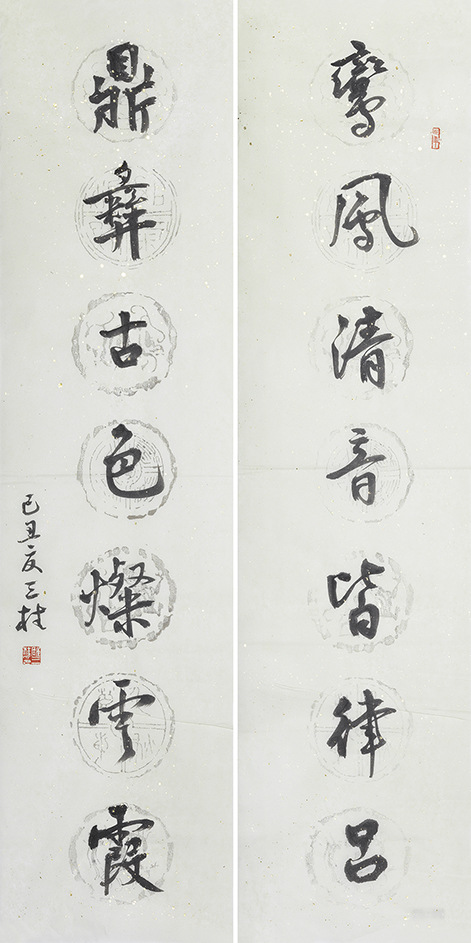 鸞鳳清音皆律呂
鼎彝古色燦雲霞
己丑夏三柱